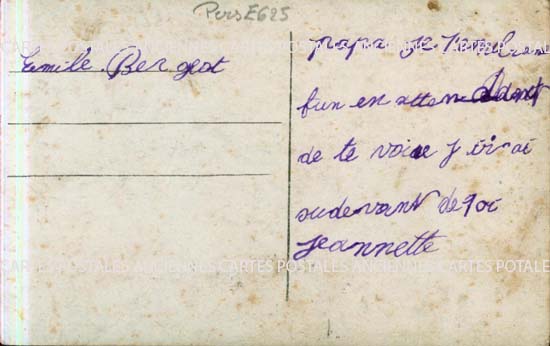 Pers E625
Emile Bergeot
papa je
fun en attendant
de te voire j irai
audevant de toi
Jeannette
CARTES POSTALES ANCIENNES CARTES POSTALES ANCIENNES ARTES POTALE